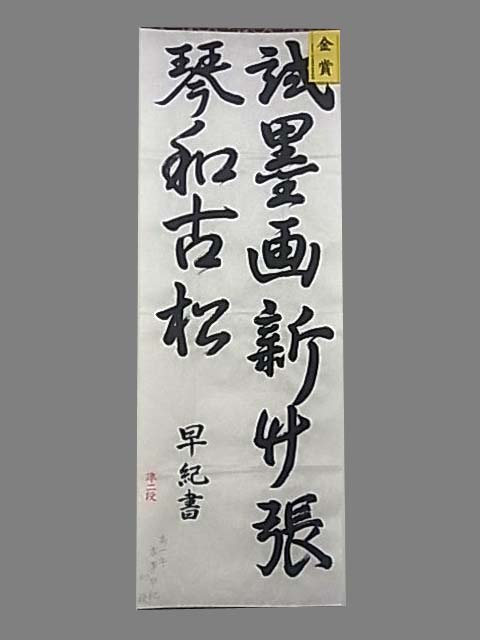 金賞
試墨画新竹張
琴和古松
早紀書
準二段
高一年